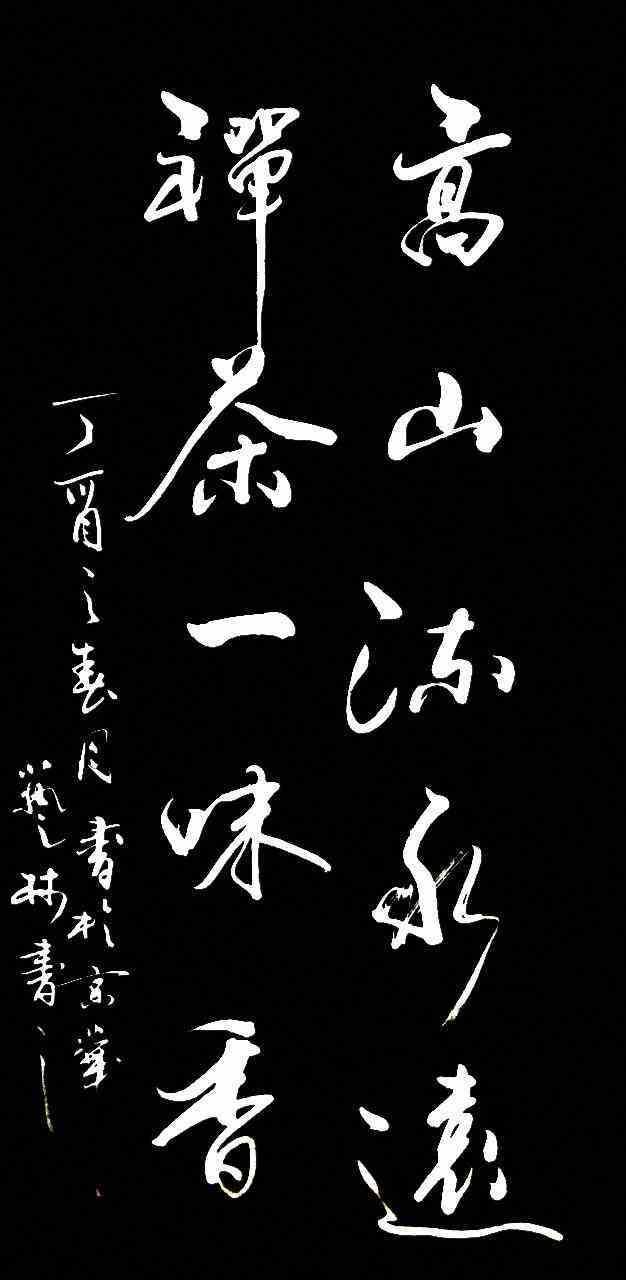 高山流水遠
禪茶一味香
丁酉之春月書於京華
藝林書之